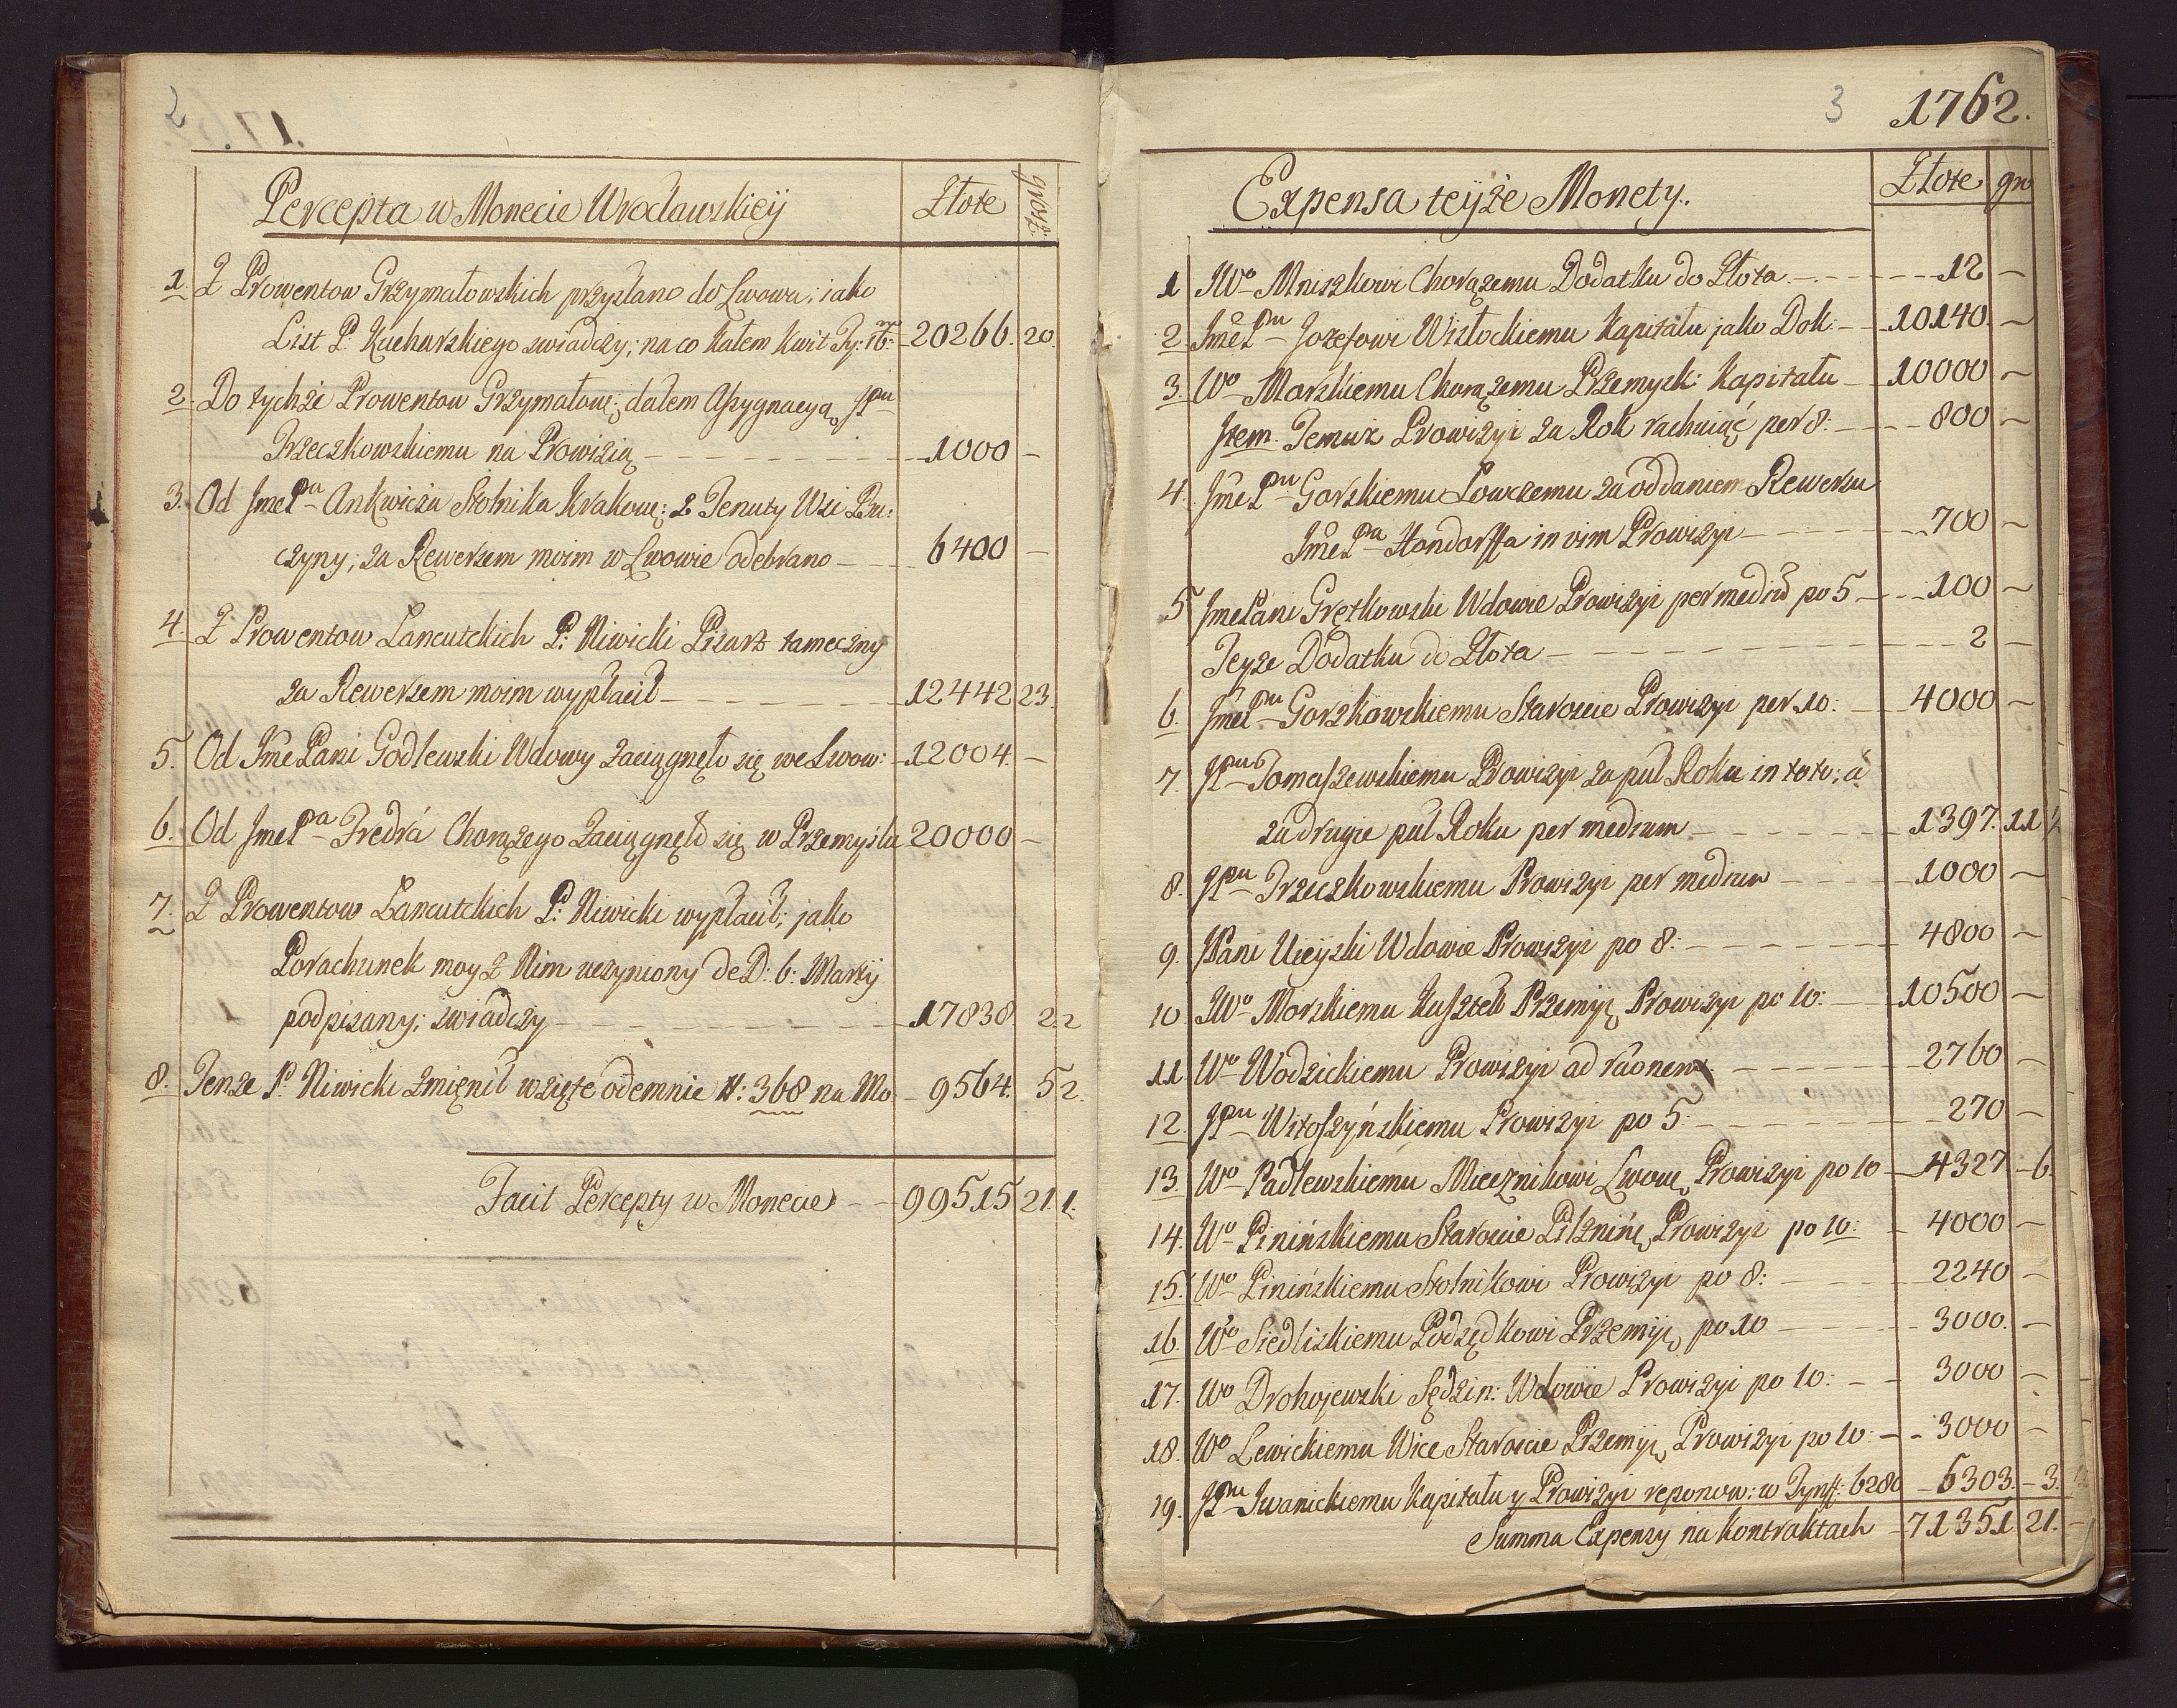 2
Percepta w Monecie Wrocławskiey
Złote
grosz.
1. Z Prowentow Grzymałowskich przysłano do Lwowa; iako
List P. Kucharskiego swiadczy; na co dałem Kwit 20266. 20.
2. Do tychże Prowentow Grzymałow: dałem Assygnacyą JPnu
Trzeczkowskiemu na Prowizią 1000 –
3. Od JmePa Ankwicza Stolnika Krakow: z Tenuty Wsi Bu:
czyny; za Rewersem moim w Lwowie odebrano 6400 –
4. Z Prowentow Lancutckich P: Niwicki Pisarz tameczny
za Rewersem moim wypłacił 12442 23.
5. Od Jme Pani Godlewski Wdowy zaciągnęło się we Lwow: 12004. –
6. Od JmePa Fredrá Chorążego Zaciągnęło się w Przemyslu 20000 –
7. Z Prowentow Lancutckich P: Niwicki wypłacił; jako
Porachunek moy z Nim uczyniony de D: 6: Martij
podpisany; swiadczy 17838. 2.2
8. Tenże P. Niwicki zmięnił wzięte odemnie #: 368 na Mo. 9564. 5 2.
Facit Percepty w Monecie 99515 21. 1.
3 1762.
Expensa teyże Monety.
Złote gro
1 JWo Mniszkowi Chorążemu Dodatku do Złota 12 –
2. JmePnu Jozefowi Wisłockiemu Kapitału jako Dok: 10140. –
3. Wo Morskiemu Chorążemu Przemysk: Kapitału 10000 –
Item. Temuż Prowizyi za Rok rachuiąć per 8: 800 –
4. JmePnu Gorskiemu Łowczemu za oddaniem Rewersu
JmePa Hondorffa in vim Prowizyi 700 –
5 JmePani Grętkowski Wdowie Prowizyi per mediū po 5 100 –
Teyże Dodatku do Złota 2 –
6. JmePnu Gorzkowskiemu Staroscie Prowizyi per 10: 4000 –
7. JPnu Tomaszewskiemu Prowizyi za puł Roku in toto; á
za drugie puł Roku per medium 1397. 11
8. JPnu Trzeczkowskiemu Prowizyi per medium 1000 –
9. JPani Ucieyski Wdowie Prowizyi po 8: 4800 –
10 JWo Morskiemu Kasztell Przemyś Prowizyi po 10: 10500 –
11 Wo Wodzickiemu Prowizyi ad raōnem 2760 –
12. JPnu Witoszyńskiemu Prowizyi po 5: 270 –
13. Wo Padlewskiemu Miecznikowi Lwow Prowizyi po 10 4327 – 6.
14. Wo Pinińskiemu Staroscie Pilznińs Prowizyi po 10: 4000 –
15. Wo Pinińskiemu Stolnikowi Prowizyi po 8: 2240 –
16. Wo Siedliskiemu Podsędkowi Przemys po 10 3000. –
17. Wo Drohojewski Sędzin: Wdowie Prowizyi po 10: 3000 –
18. Wo Lewickiemu Wice Staroscie Przemyś Prowizyi po 10: 3000 –
19. JPnu Iwanickiemu Kapitału y Prowizyi reponow: w Tynff: 6280 6303. – 3.
Summa Expensy na Kontraktach 71351. 21. –